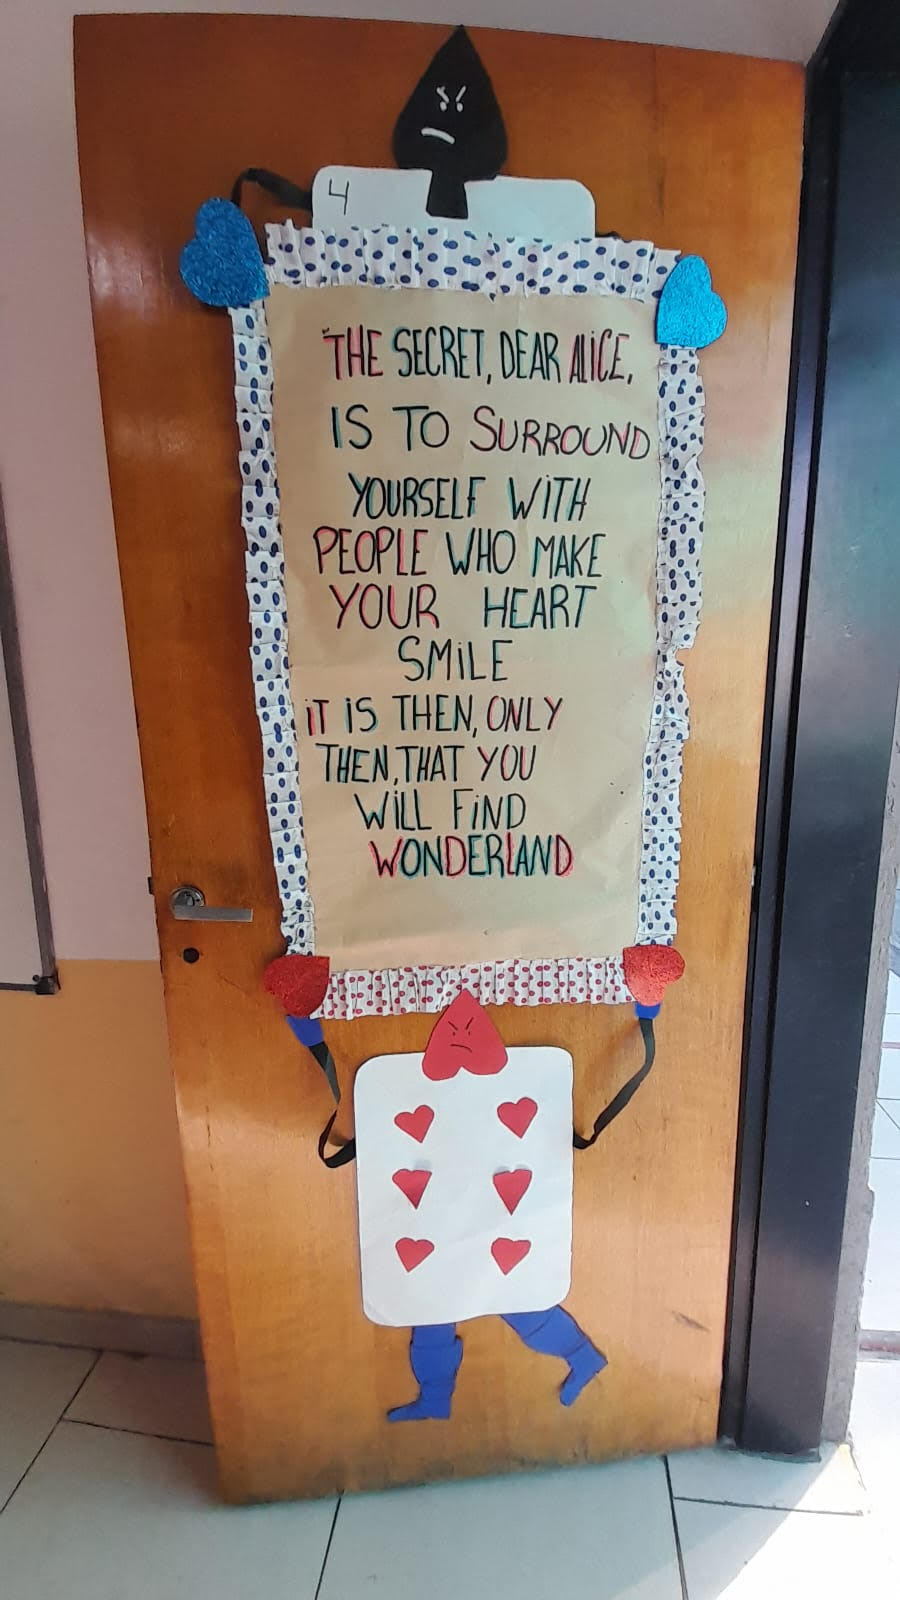 4
"THE SECRET, DEAR ALiCE,
IS TO SURROUND
YOURSELF WiTH
PEOPLE WHO MAKE
YOUR HEART
SMiLE
iT iS THEN, ONLY
THEN, THAT YOU
WiLL FiND
WONDERLAND